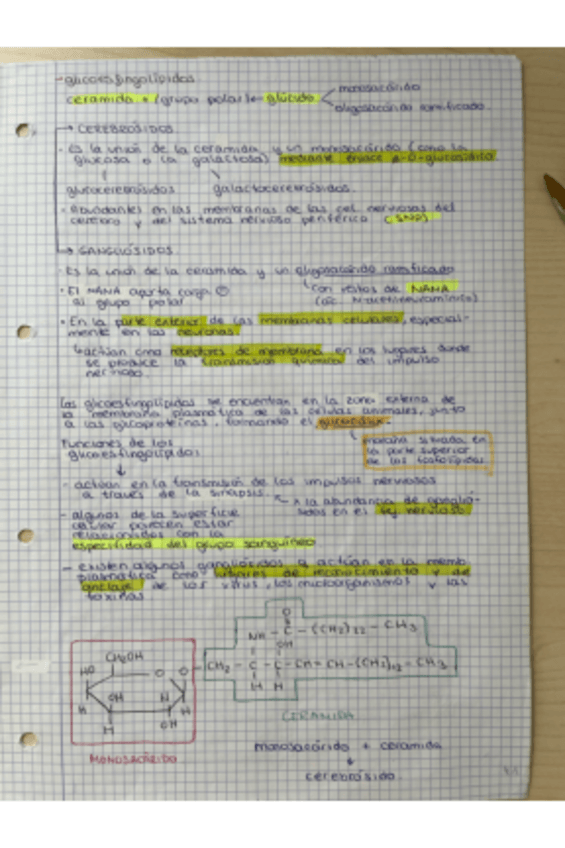 - glicoesfingolípidos
ceramida + (grupo polar) glúcido < monosacárido
oligosacárido ramificado.
→ CEREBRÓSIDOS
· Es la unión de la ceramida y un monosacárido (como la
glucosa o la galactosa) mediante enlace β-O-glucosídico
glucocerebrósidos galactocerebrósidos.
· Abundantes en las membranas de las cel. nerviosas del
cerebro y del sistema nervioso periférico (SNP)
→ GANGLIÓSIDOS
· Es la unión de la ceramida y un oligosacárido ramificado
con restos de NANA
(ác. N-acetilneuramínico)
· El NANA aporta carga ⊖
al grupo polar
· En la parte exterior de las membranas celulares, especial-
mente en las neuronas.
↳ actúan como receptores de membrana en los lugares donde
se produce la transmisión química del impulso
nervioso.
Los glicoesfingolípidos se encuentran en la zona externa de
la membrana plasmática de las células animales, junto
a las glucoproteínas, formando el glicocálix.
maraña situada en
la parte superior
de los fosfolípidos
Funciones de los
glicoesfingolípidos
- actúan en la transmisión de los impulsos nerviosos
a través de la sinapsis. ← x la abundancia de ganglió-
sidos en el sej nervioso
- algunos de la superficie
celular parecen estar
relacionados con la
especifidad del grupo sanguíneo
- existen algunos gangliósidos q actúan en la memb.
plasmática como lugares de reconocimiento y de
anclaje de los virus, los microorganismos y las
toxinas
O
NH - C - (CH₂)22 - CH₃
OH
CH₂OH
HO O O - CH₂ - C - C - CH = CH - (CH₂)12 - CH₃
OH H
H H H H
H OH
CERAMIDA
MONOSACÁRIDO
monosacárido + ceramida
↓
cerebrósido